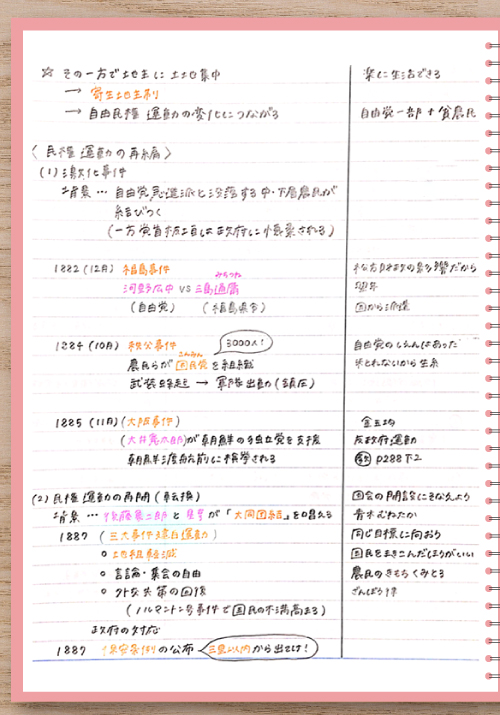 ☆ その一方で地主に土地集中
楽に生活できる
→ 寄生地主制
→ 自由民権運動の変化につながる
自由党一部 + 貧農民
〈民権運動の再編〉
(1) 激化事件
背景 … 自由党急進派と没落する中・下層農民が
結びつく
(一方党首板垣は政府に懐柔される)
1882 (12月) 福島事件
松方財政の影響だから
みちつね
河野広中 VS 三島通庸
(自由党) (福島県令)
国から派遣
1884 (10月) 秩父事件
3000人!
自由党のしえんはあった
こんみん
農民らが困民党を組織
米とれないから生糸
武装蜂起 → 軍隊出動 (鎮圧)
1885 (11月) (大阪事件)
金玉均
(大井憲太郎)が朝鮮の独立党を支援
反政府運動
朝鮮渡航前に検挙される
p288下2
(2) 民権運動の再開 (転換)
国会の開設にそなえよう
背景 … 後藤象二郎と星亨が「大同団結」を唱える
青木むねたか
1887 (三大事件建白運動)
同じ目標に向おう
○ 地租軽減
国民をまきこんだほうがいい
○ 言論・集会の自由
農民のきもちくみとる
○ 外交失策の回復
ざんぼう律
(ノルマントン号事件で国民の不満高まる)
政府の対応
1887 保安条例の公布
三里以内から出てけ!